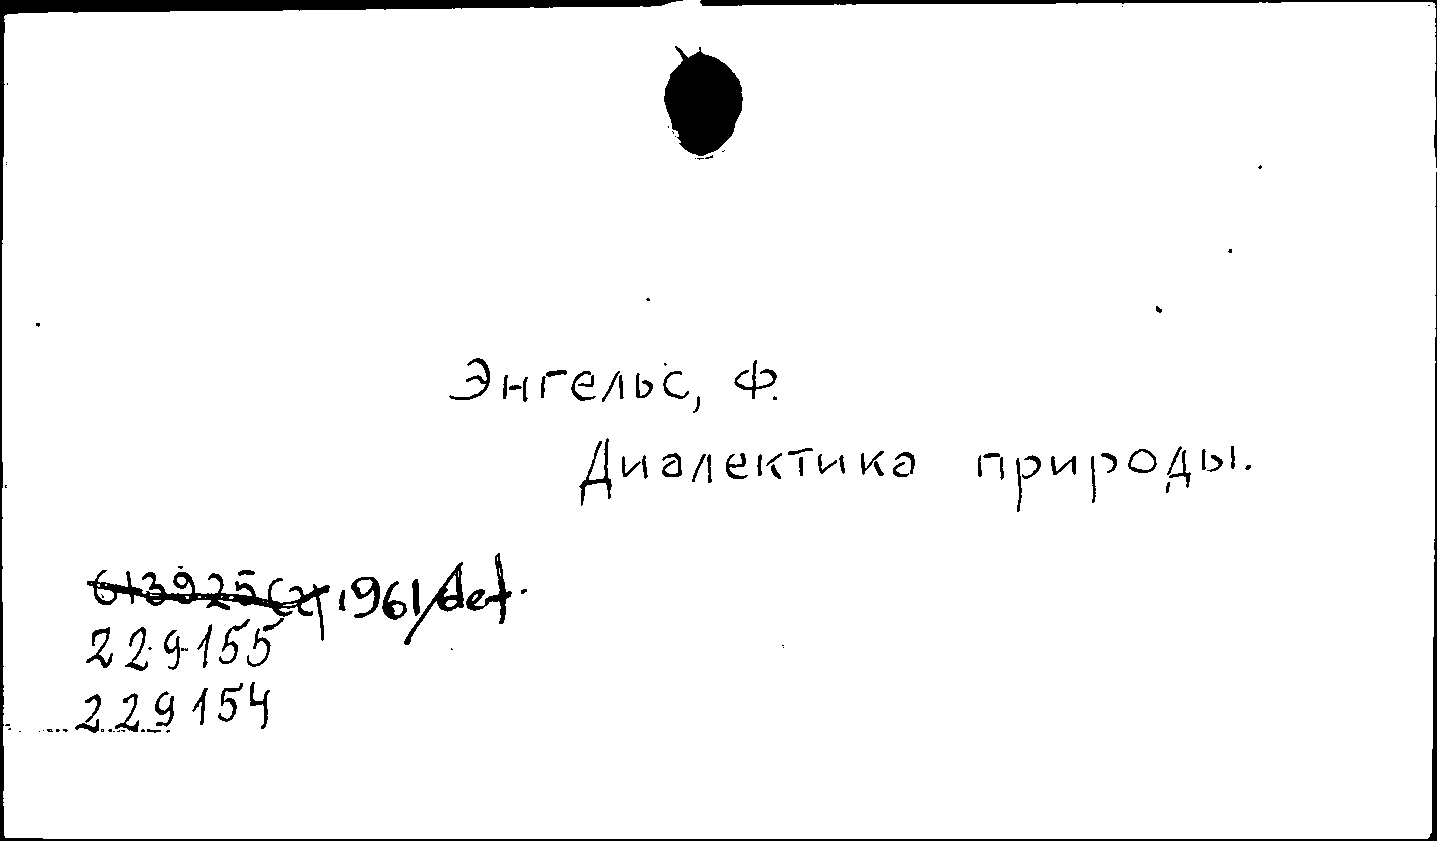 Энгельс, Ф.
Диалектика природы.
613925 1961/def.
229155
229154